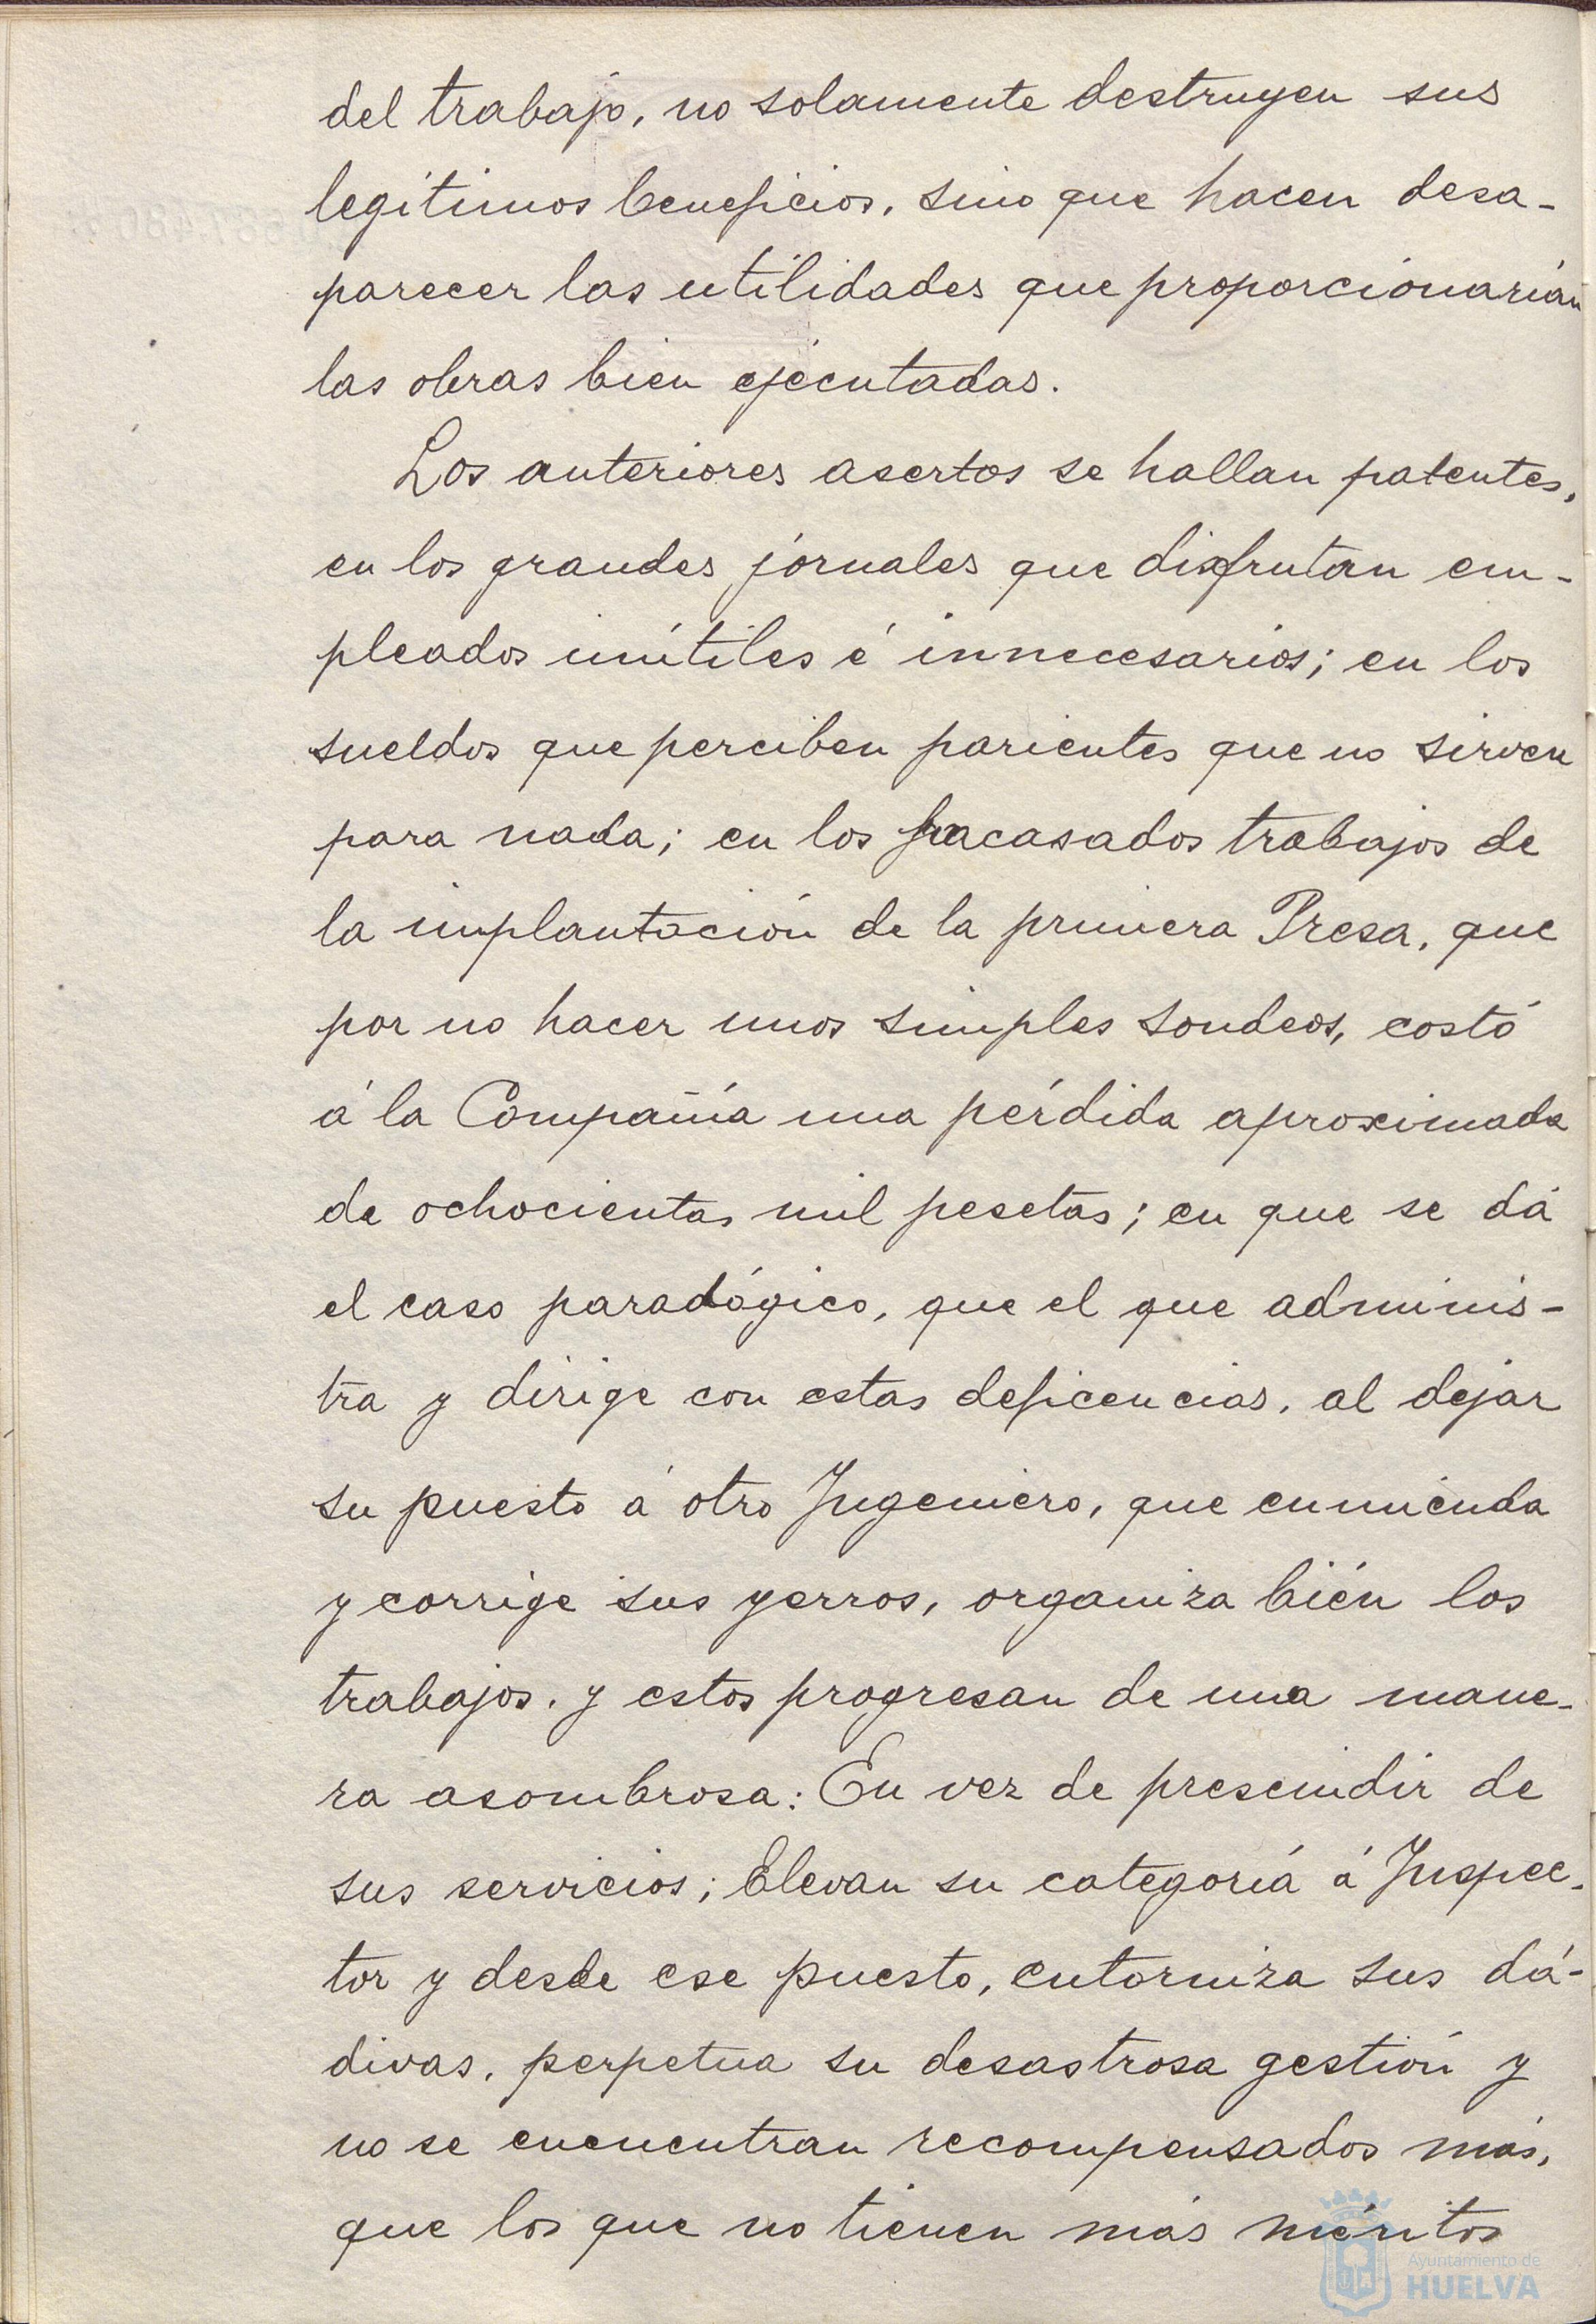 del trabajo, no solamente destruyen sus
legítimos beneficios, sino que hacen desa-
parecer las utilidades que proporcionarían
las obras bien ejecutadas.
Los anteriores asertos se hallan patentes,
en los grandes jornales que disfrutan em-
pleados inútiles é innecesarios; en los
sueldos que perciben parientes que no sirven
para nada; en los fracasados trabajos de
la implantación de la primera Presa, que
por no hacer unos simples sondeos, costó
á la Compañía una pérdida aproximada
de ochocientas mil pesetas; en que se dá
el caso paradógico, que el que adminis-
tra y dirige con estas deficencias, al dejar
su puesto á otro Ingeniero, que enmienda
y corrige sus yerros, organiza bién los
trabajos, y estos progresan de una mane-
ra asombrosa: En vez de prescindir de
sus servicios; Elevan su categoría á Inspec-
tor y desde ese puesto, entorniza sus dá-
divas, perpetua su desastrosa gestión y
no se encuentran recompensados más,
que los que no tienen más méritos
Ayuntamiento de
HUELVA